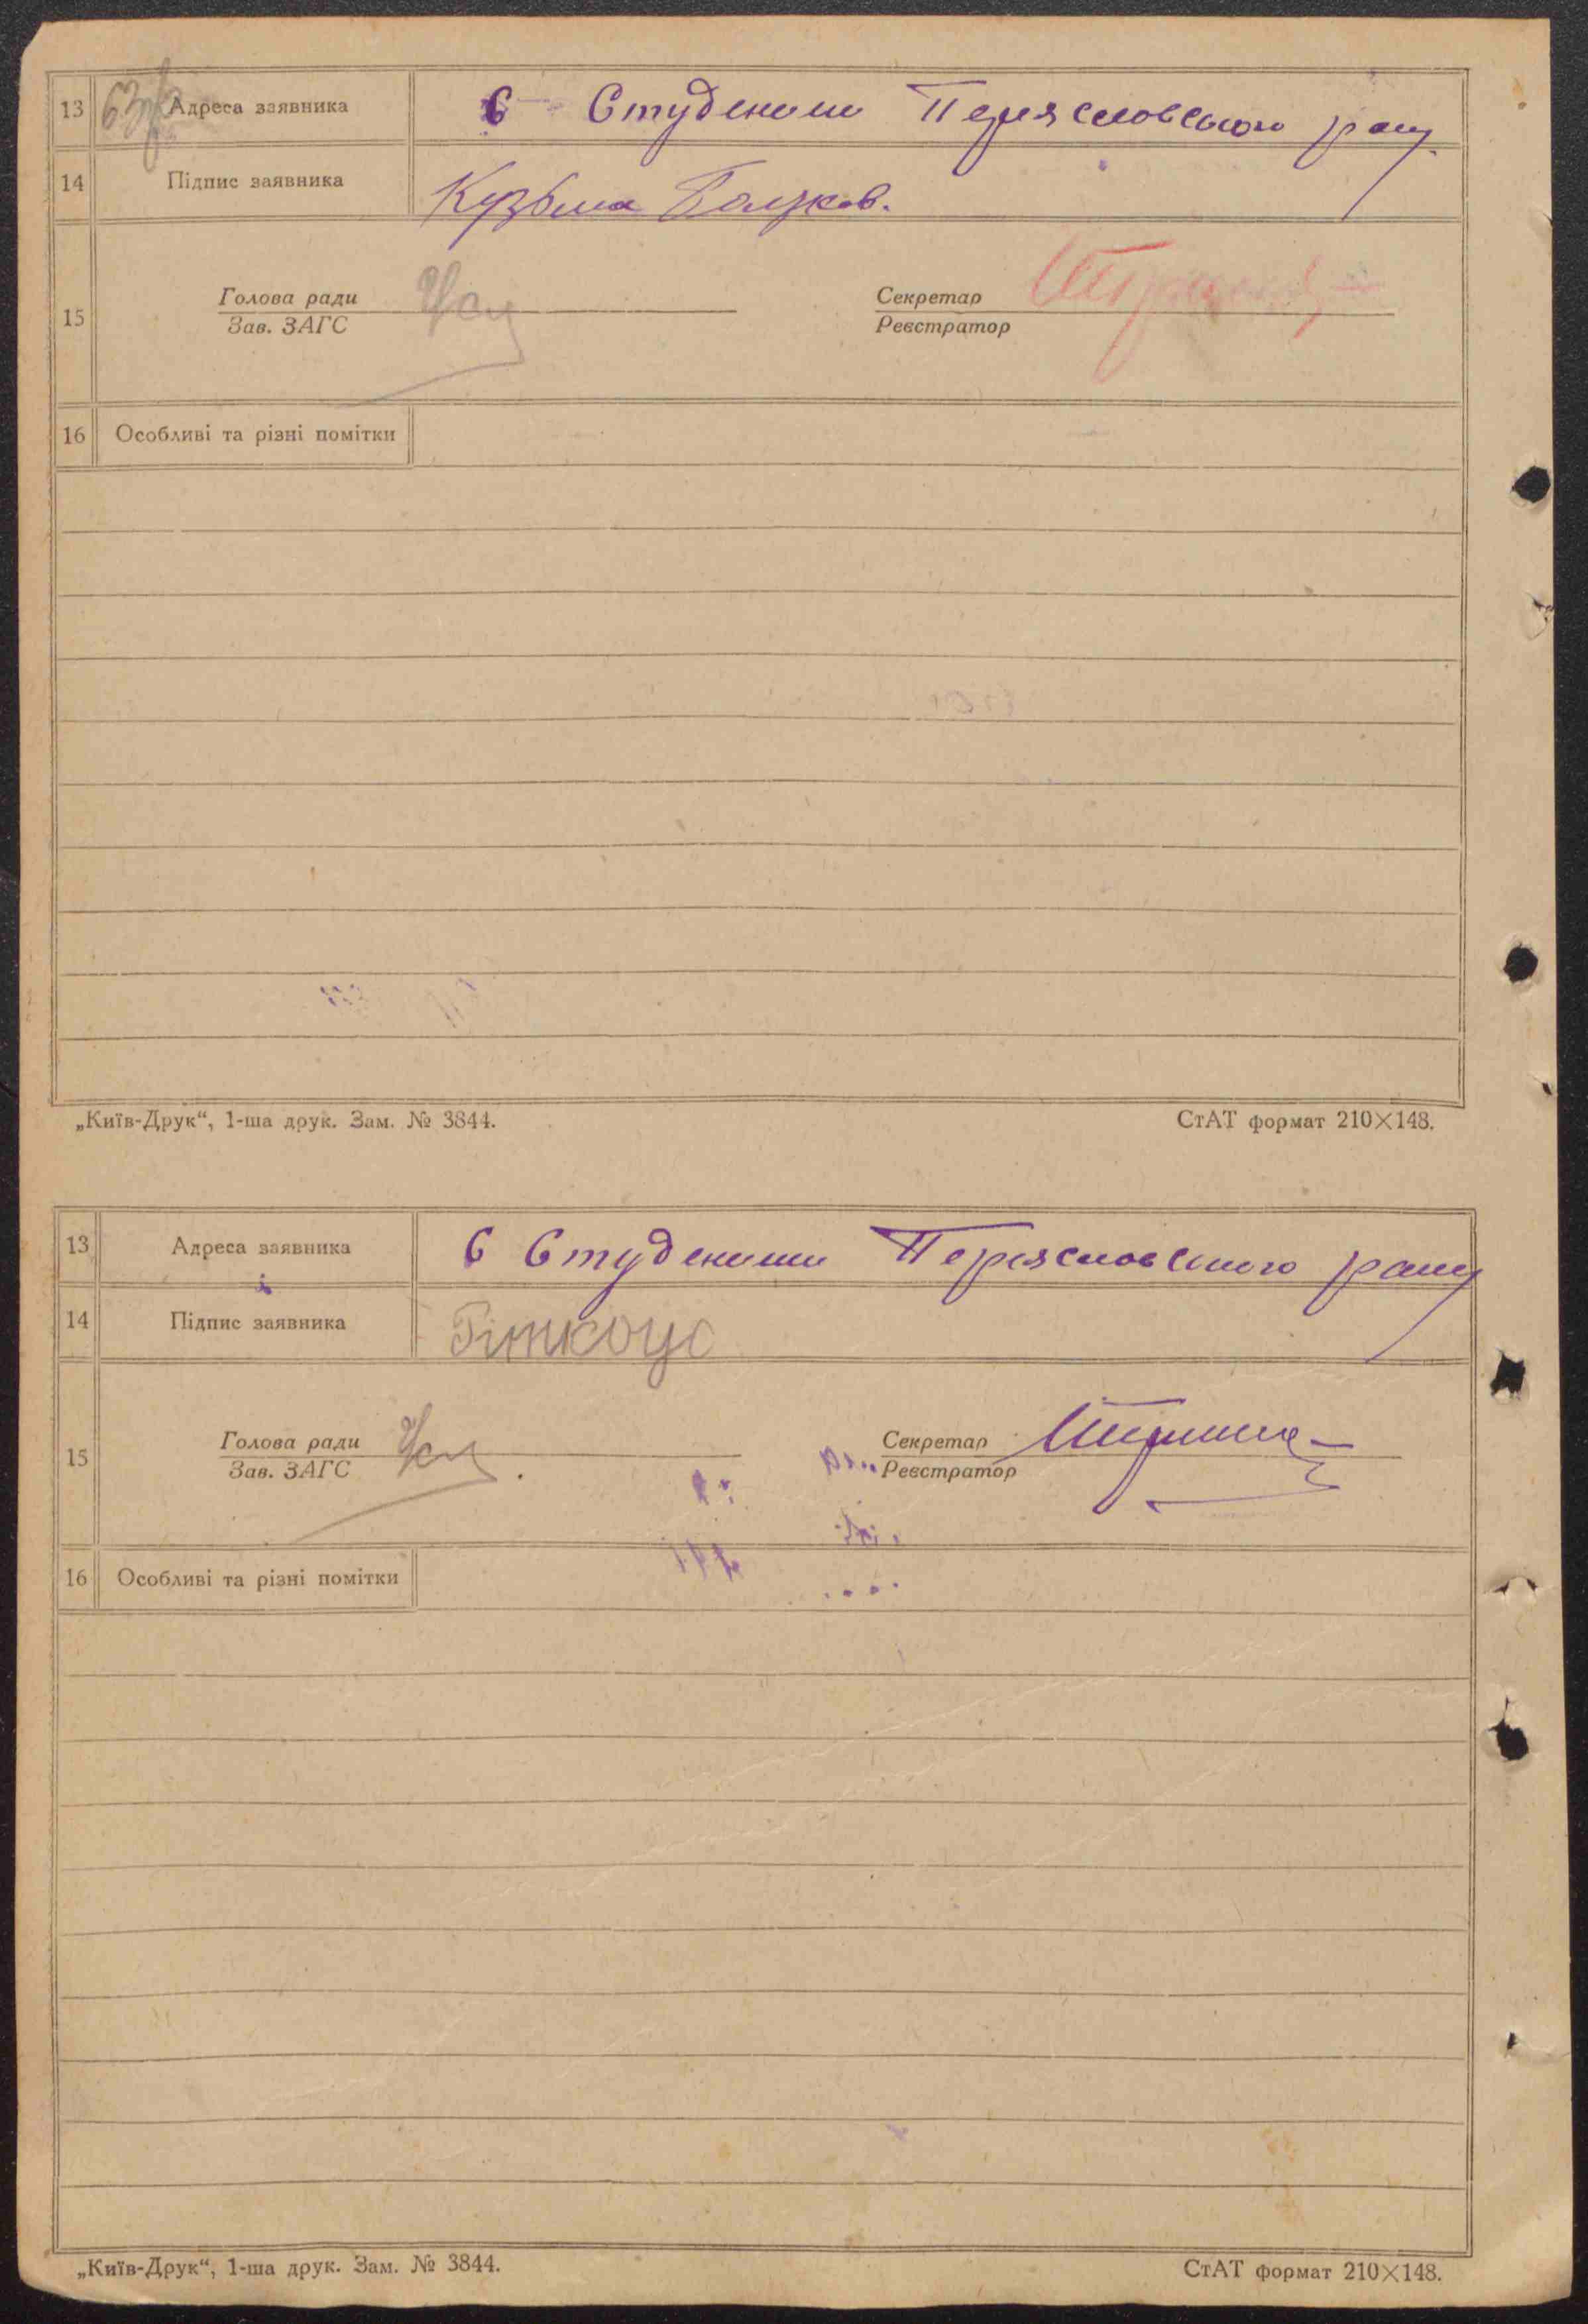 63
13 Адреса заявника С Студеники Переяславського рану
14 Підпис заявника Кузьма
15 Голова ради Секретар
Зав. ЗАГС Реєстратор
16 Особливі та різні помітки
„Київ-Друк“, 1-ша друк. Зам. № 3844. СтАТ формат 210×148.
13 Адреса заявника С Студеники Переясловського рану
14 Підпис заявника
15 Голова ради Секретар
Зав. ЗАГС Реєстратор
16 Особливі та різні помітки
„Київ-Друк“, 1-ша друк. Зам. № 3844. СтАТ формат 210×148.